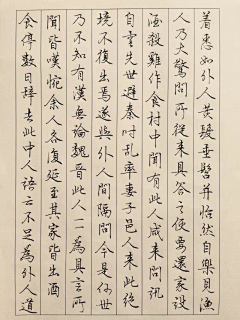 着悉如外人黄髮垂髫并怡然自樂見漁
人乃大驚問所從来具答之便要還家設
酒殺雞作食村中聞有此人咸来問訊
自云先世避秦时乱率妻子邑人来此绝
境不復出焉遂與外人間隔問今是何世
乃不知有漢無論魏晉此人一一為具言所
聞皆嘆惋余人各復延至其家皆出酒
食停數日辞去此中人語云不足為外人道